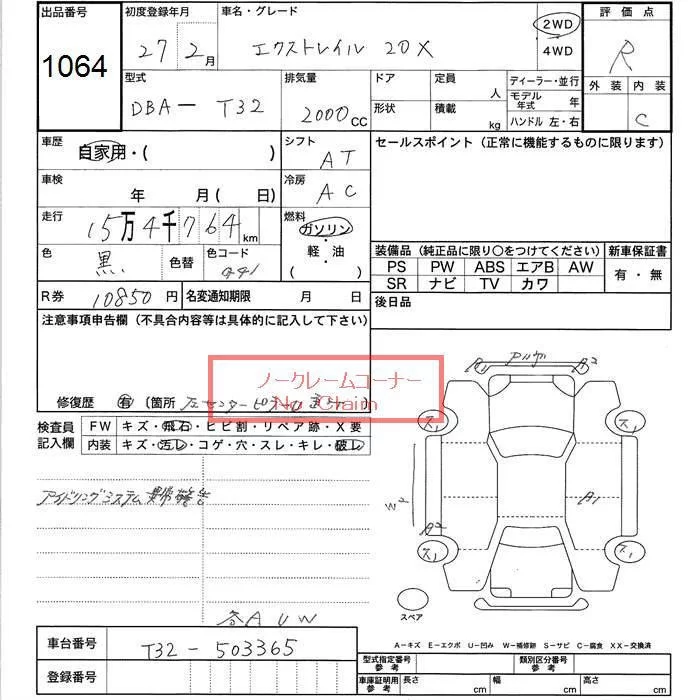 出品番号 初度登録年月 車名・グレード 評価点
1064 27 2月 エクストレイル 20X 2WD 4WD R
型式 排気量 ドア 定員 人 ディーラー・並行 外装 内装
DBA- T32 2000cc 形状 積載 kg モデル年式 年 ハンドル 左・右 C
車歴 自家用・( ) シフト AT セールスポイント(正常に機能するものに限ります)
車検 年 月( 日) 冷房 AC
走行 15万4千764km 燃料 ガソリン・軽油
色 黒 色替 色コード ( )
装備品(純正品に限り○をつけてください) 新車保証書
PS PW ABS エアB AW 有・無
SR ナビ TV カワ
R券 10850円 名変通知期限 月 日 後日品
注意事項申告欄(不具合内容等は具体的に記入して下さい)
ノークレームコーナー
No Claim
修復歴 有 (箇所 )
検査員記入欄 FW キズ・飛石・ヒビ割・リペア跡・X要
内装 キズ・汚レ・コゲ・穴・スレ・キレ・破レ
アイドリングシステム異常警告
各AUW
A1 A2
ス1 ス1
A1
A2
ス1 ス1
スペア
A-キズ E-エクボ U-凹み W-補修跡 S-サビ C-腐食 XX-交換済
車台番号 T32-503365
登録番号
型式指定番号参考 類別区分番号参考
車庫証明用参考 長さ cm 幅 cm 高さ cm